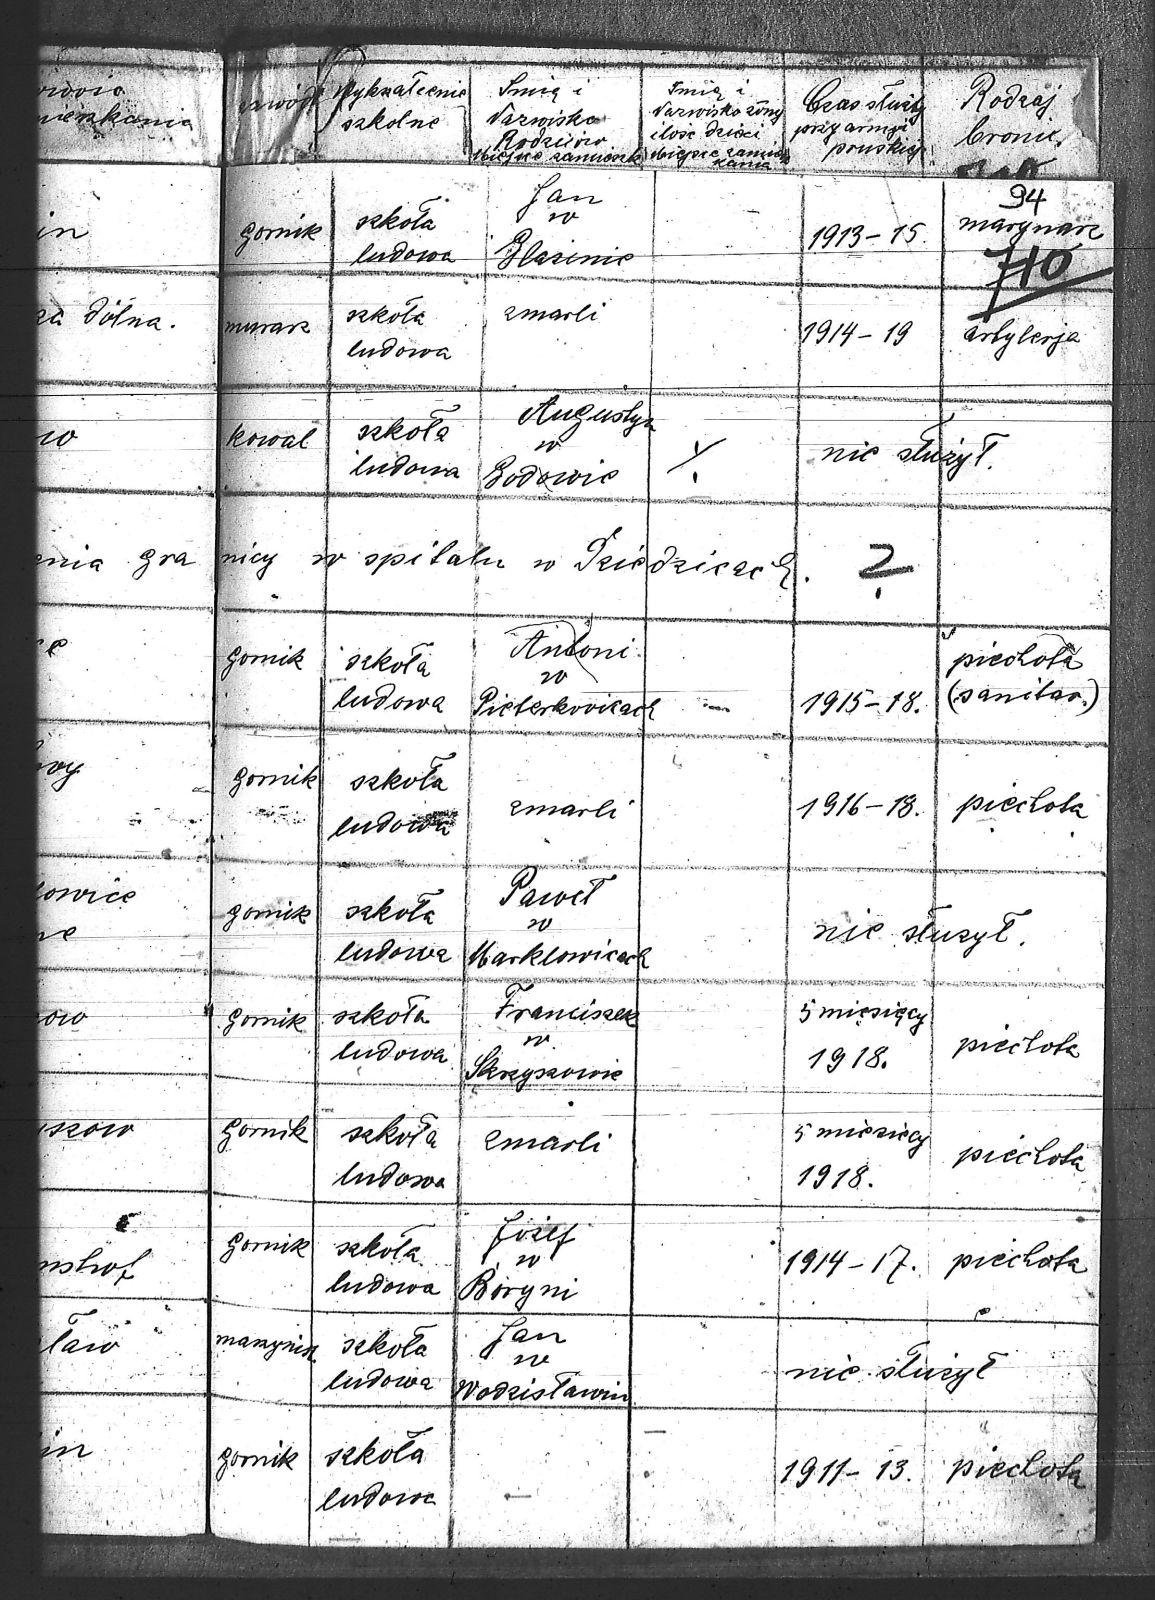 zawód Wykształcenie szkolne Imię i Nazwisko Rodziców Miejsce zamieszk Imię i Nazwisko żony ilość dzieci Miejsce zamieszkania Czas służby przy armji pruskiej Rodzaj broni.
94
710
in gornik szkoła ludowa Jan w Glasinie 1913-15. marynarz
dólna. murarz szkoła ludowa zmarli 1914-19 artylerja
kowal szkoła ludowa Augustyn w Godowie nie służył.
gra nicy w spitalu w Dziedzicach. ?
gornik szkoła ludowa Antoni w Pieterkovicach - 1915-18. piechota (sanitar.)
gornik szkoła ludowa zmarli 1916-18. piechota
owice gornik szkoła ludowa Paweł w Marklowicach nie służył.
gornik szkoła ludowa Franciszek w Skrzyszowie 5 miesięcy 1918. piechota
szow gornik szkoła ludowa zmarli 5 miesięcy 1918. piechota
nshof gornik szkoła ludowa Józef w Boryni 1914-17. piechota
sław maszynist szkoła ludowa Jan w Wodzisławiu nie służył
in gornik szkoła ludowa - 1911-13. piechota